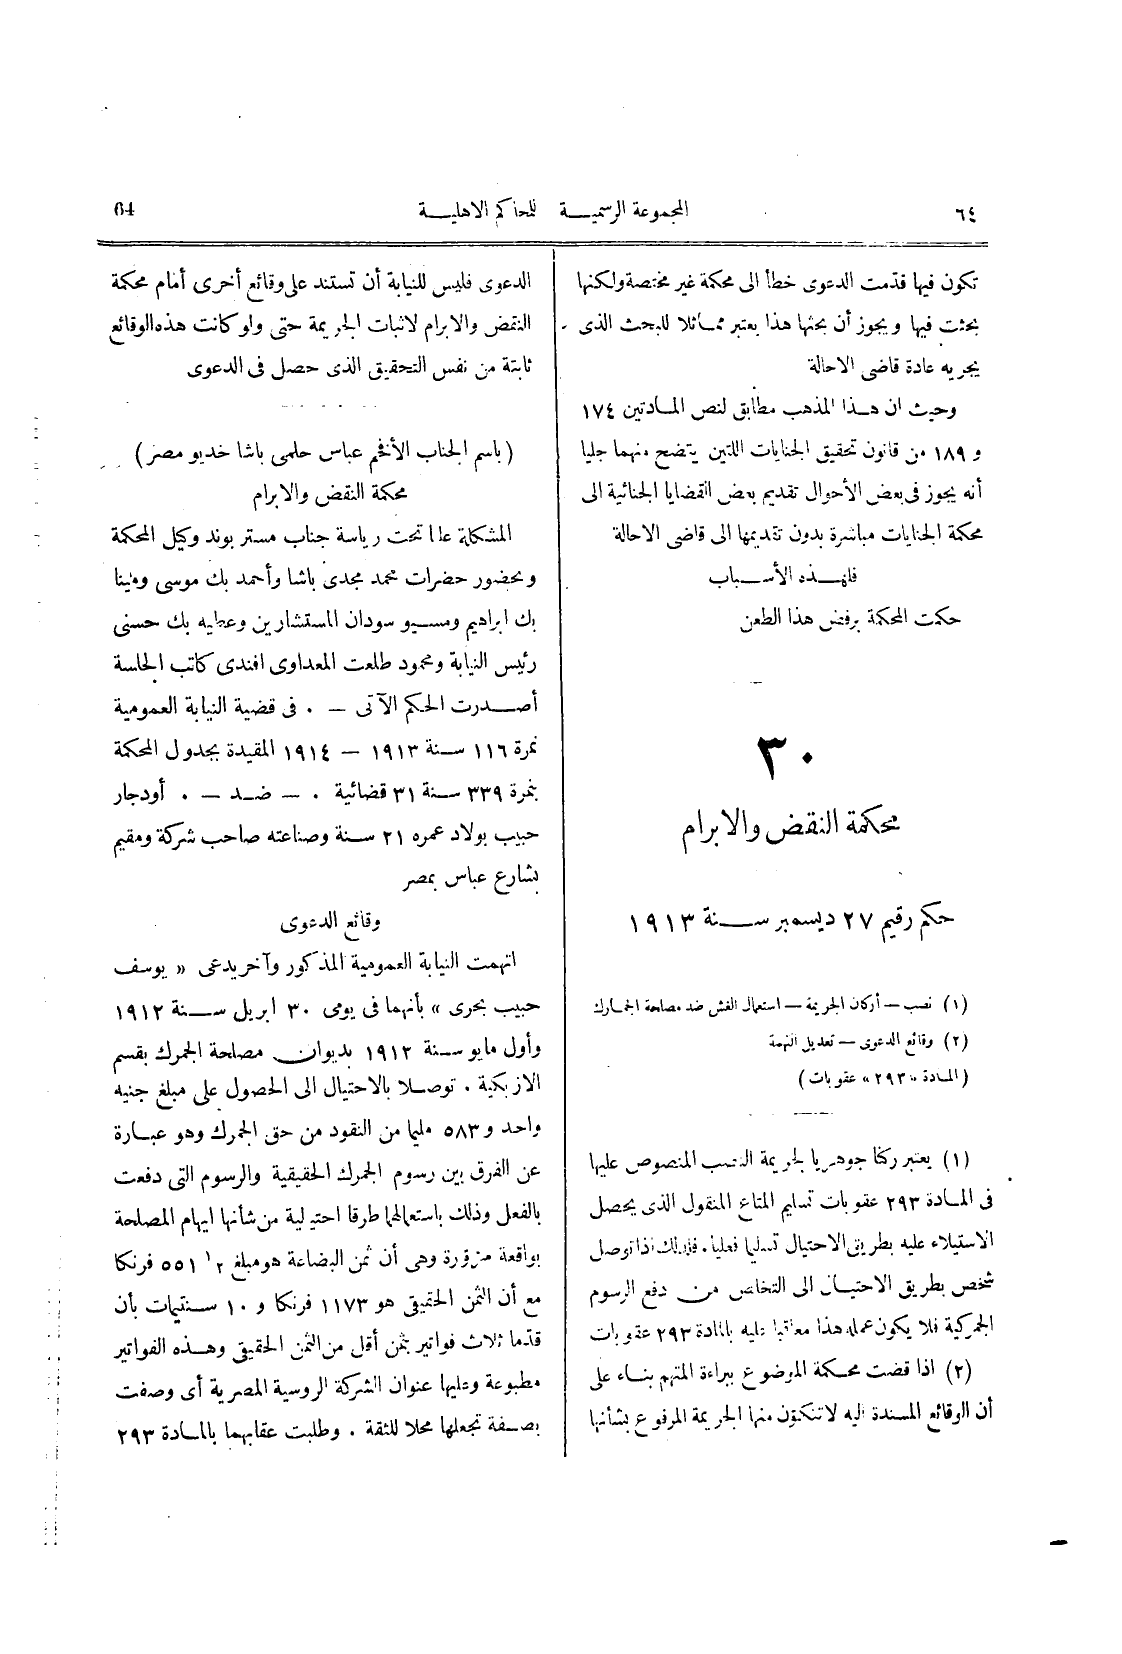 ٦٤ المجموعة الرسمية للمحاكم الاهلية 64
تكون فيها قدّمت الدعوى خطأ الى محكمة غير مختصة ولكنها
بحثت فيها ويجوز أن بحثها هذا يعتبر مماثلا للبحث الذى
يجريه عادة قاضى الاحالة
وحيث ان هذا المذهب مطابق لنص المادتين ١٧٤
و ١٨٩ من قانون تحقيق الجنايات اللتين يتضح منهما جليا
أنه يجوز فى بعض الأحوال تقديم بعض القضايا الجنائية الى
محكمة الجنايات مباشرة بدون تقديمها الى قاضى الاحالة
فلهذه الأسباب
حكمت المحكمة برفض هذا الطعن
٣٠
محكمة النقض والابرام
حكم رقيم ٢٧ ديسمبر سنة ١٩١٣
(١) نصب — أركان الجريمة — استعمال الغش ضد مصلحة الجمارك
(٢) وقائع الدعوى — تعديل التهمة
(المادة «٢٩٣» عقوبات)
(١) يعتبر ركنا جوهريا لجريمة النصب المنصوص عليها
فى المادة ٢٩٣ عقوبات تسليم المتاع المنقول الذى يحصل
الاستيلاء عليه بطريق الاحتيال تسليما فعليا . فلذلك اذا توصل
شخص بطريق الاحتيال الى التخلص من دفع الرسوم
الجمركية فلا يكون عمله هذا معاقبا عليه بالمادة ٢٩٣ عقوبات
(٢) اذا قضت محكمة الموضوع ببراءة المتهم بناء على
أن الوقائع المسندة اليه لا تتكوّن منها الجريمة المرفوع بشأنها
الدعوى فليس للنيابة أن تستند على وقائع أخرى أمام محكمة
النقض والابرام لاثبات الجريمة حتى ولو كانت هذه الوقائع
ثابتة من نفس التحقيق الذى حصل فى الدعوى
(باسم الجناب الأفخم عباس حلمى باشا خديو مصر)
محكمة النقض والابرام
المشكلة علنا تحت رياسة جناب مستر بوند وكيل المحكمة
وبحضور حضرات محمد مجدى باشا وأحمد بك موسى ومينا
بك ابراهيم ومسيو سودان المستشارين وعطيه بك حسنى
رئيس النيابة ومحمود طلعت المعداوى افندى كاتب الجلسة
أصدرت الحكم الآتى — . فى قضية النيابة العمومية
نمرة ١١٦ سنة ١٩١٣ — ١٩١٤ المقيدة بجدول المحكمة
بنمرة ٣٣٩ سنة ٣١ قضائية . — ضد — . أودجار
حبيب بولاد عمره ٢١ سنة وصناعته صاحب شركة ومقيم
بشارع عباس بمصر
وقائع الدعوى
اتهمت النيابة العمومية المذكور وآخر يدعى « يوسف
حبيب بحرى » بأنهما فى يومى ٣٠ ابريل سنة ١٩١٢
وأول مايو سنة ١٩١٢ بديوان مصلحة الجمرك بقسم
الازبكية . توصلا بالاحتيال الى الحصول على مبلغ جنيه
واحد و ٥٨٣ مليما من النقود من حق الجمرك وهو عبارة
عن الفرق بين رسوم الجمرك الحقيقية والرسوم التى دفعت
بالفعل وذلك باستعمالهما طرقا احتيالية من شأنها ايهام المصلحة
بواقعة مزوّرة وهى أن ثمن البضاعة هو مبلغ ½ ٥٥١ فرنكا
مع أن الثمن الحقيقى هو ١١٧٣ فرنكا و ١٠ سنتيمات بأن
قدّما ثلاث فواتير بثمن أقل من الثمن الحقيقى وهذه الفواتير
مطبوعة وعليها عنوان الشركة الروسية المصرية أى وصفت
بصفة تجعلها محلا للثقة . وطلبت عقابهما بالمادة ٢٩٣